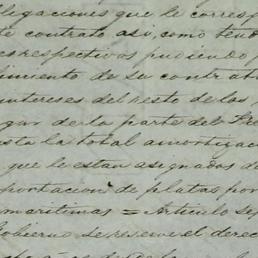 ligaciones que le corresp
te contrato así, como tend
es respectivos pudiendo
limiento de su contrato
intereses del resto de los
gar de la parte del Fe
sta la total amortizaci
que le estan asignados de
portacion de platas por
marítimas = Artículo se
obierno se reserve el derec